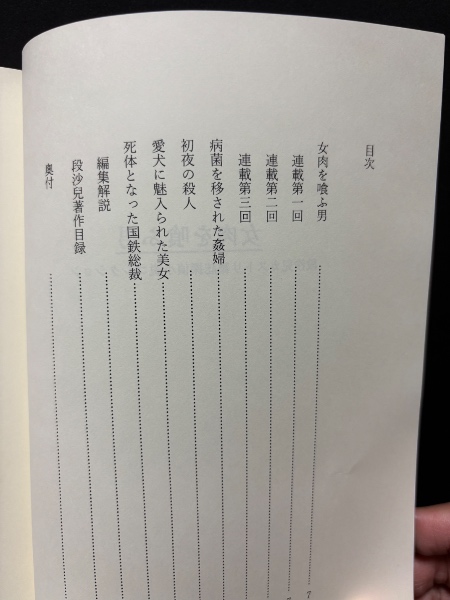 目次
女肉を喰ふ男
連載第一回
連載第二回
連載第三回
病菌を移された姦婦
初夜の殺人
愛犬に魅入られた美女
死体となった国鉄総裁
編集解説
段沙兒著作目録
奥付
7